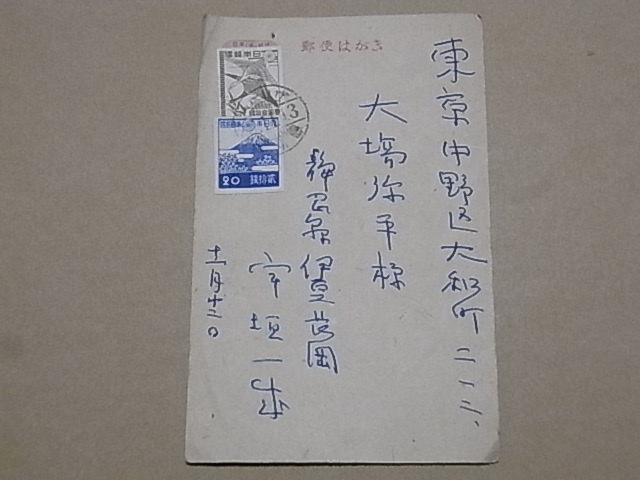 郵便はがき
東京中野区大和町二一二、
大塲弥平様
静岡県伊豆長岡
宇垣一成
十一月十二日
貳拾錢
20
13